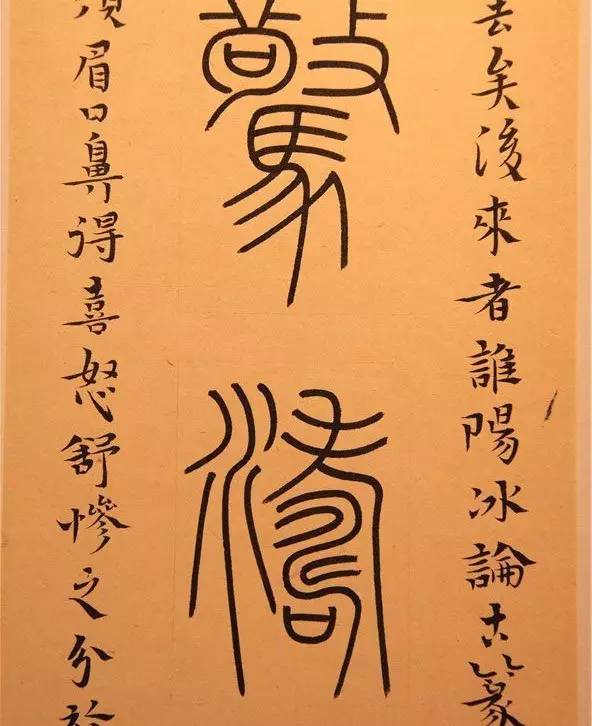 去矣後來者誰陽冰論古篆
驚濤
須眉口鼻得喜怒舒慘之分於